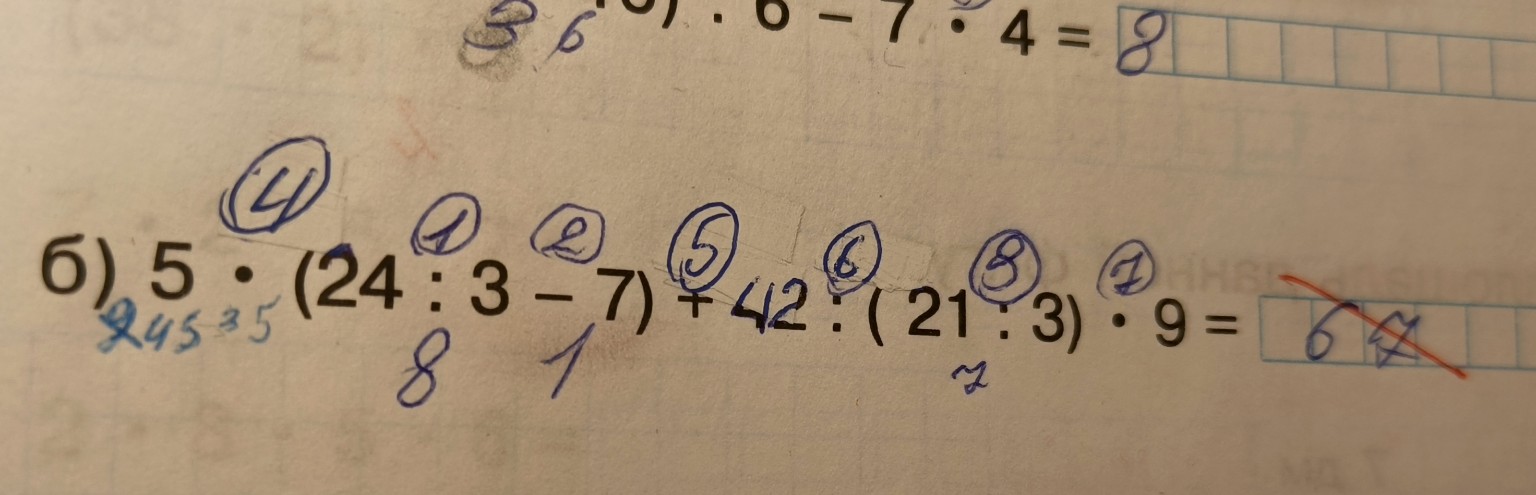 3 6 6 – 7 · 4 = 8
4 1 2 5 6 3 7
б) 5 · (24 : 3 – 7) + 42 : ( 21 : 3) · 9 = 67
45 35
8 1 7